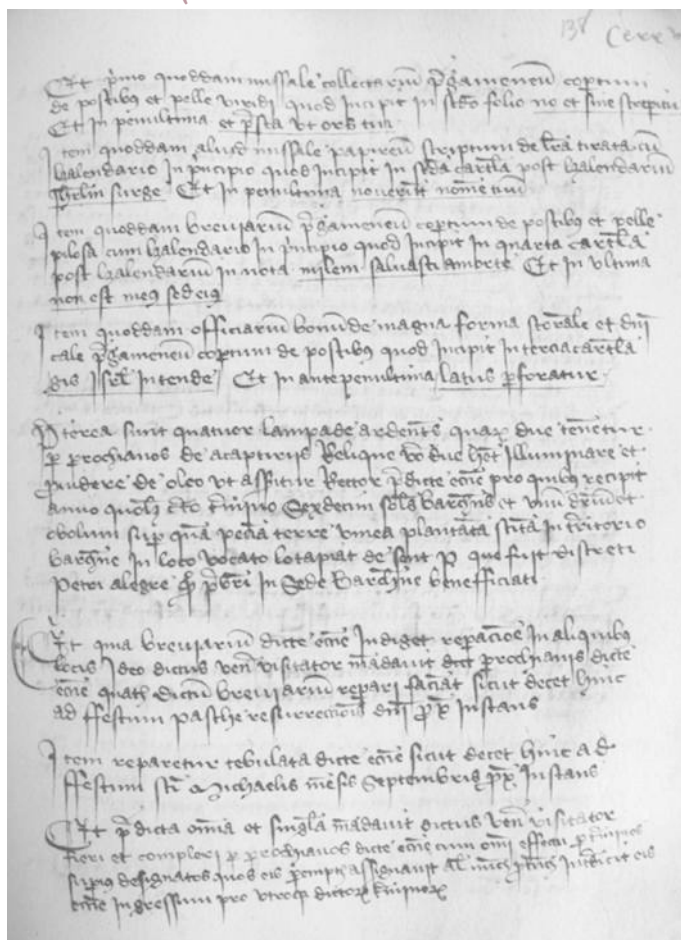 138
Et primo quoddam missale collectariu pgameneu coptum
de postibus et pelle viridi quod Incipit In scdo folio no et sine strepitu
Et In penultima et psta vt orbs tua
Item quoddam aliud missale papireu scriptum de lra tirata cu
kalendario In principio quod Incipit In scda cartla post kalendariu
Et In penultima nouerit nome tuu
Item quoddam breuiariu pgameneu coptum de postibus et pelle
pilosa cum kalendario In principio quod Incipit In quarta cartla
post kalendariu In nota saluasti amorte Et In vltima
non est meus sed eius
Item quoddam officiariu bonu de magna forma sto rale et dni
cale pgameneu coptum de postibus quod Incipit In tercia cartla
Isrl Intende Et In ante penultima latus pforatur
Pterea sunt quatuor lampade ardents quar due tenetur
p prochianos de acaptiriis Relique vo due het Illuminare et
prouidere de oleo vt asseritur Rector pdicte eccie pro quibus recipit
anno quolt cto tmino Sexdecim solds barchns et vnu dr et
obolum sup qua pecia terre vinea plantata scituata In tritorio
barchne In loco vocato lotaprat de sent p que fuit discreti
Petri alegre pbri In Sede barchne beneficiati
Et quia breuiariu dicte eccie Indiget repacioe In aliquibus
locis Ideo dictus ven visitator madauit dict prochianis dicte
eccie quath dictu breuiariu repari faciat sicut decet hinc
ad ffestum pasche resurrectiois dni prox Instans
Item reparetur tebulata dicte eccie sicut decet hinc ad
ffestum sti Michaelis mesis Septembris prox Instans
Et pdicta omia et singla madauit dictus ven visitator
fieri et compleri p prochianos dicte eccie cum omi effectu p tminos
supius designatos quos eis pempt assignauit al Indicit eis
eccie Ingressum pro vtroq dictor tminor